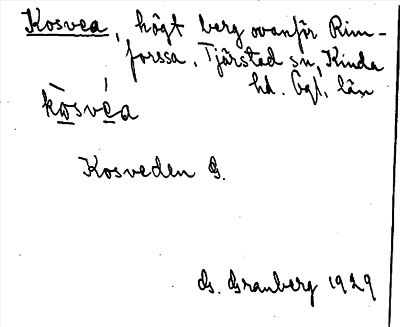 Kosvea, högt berg ovanför Rim-
forssa, Tjärstad sn, Kinda
hd. Ögl, län
kòsvéa
Kosveden G.
G. Granberg 1929